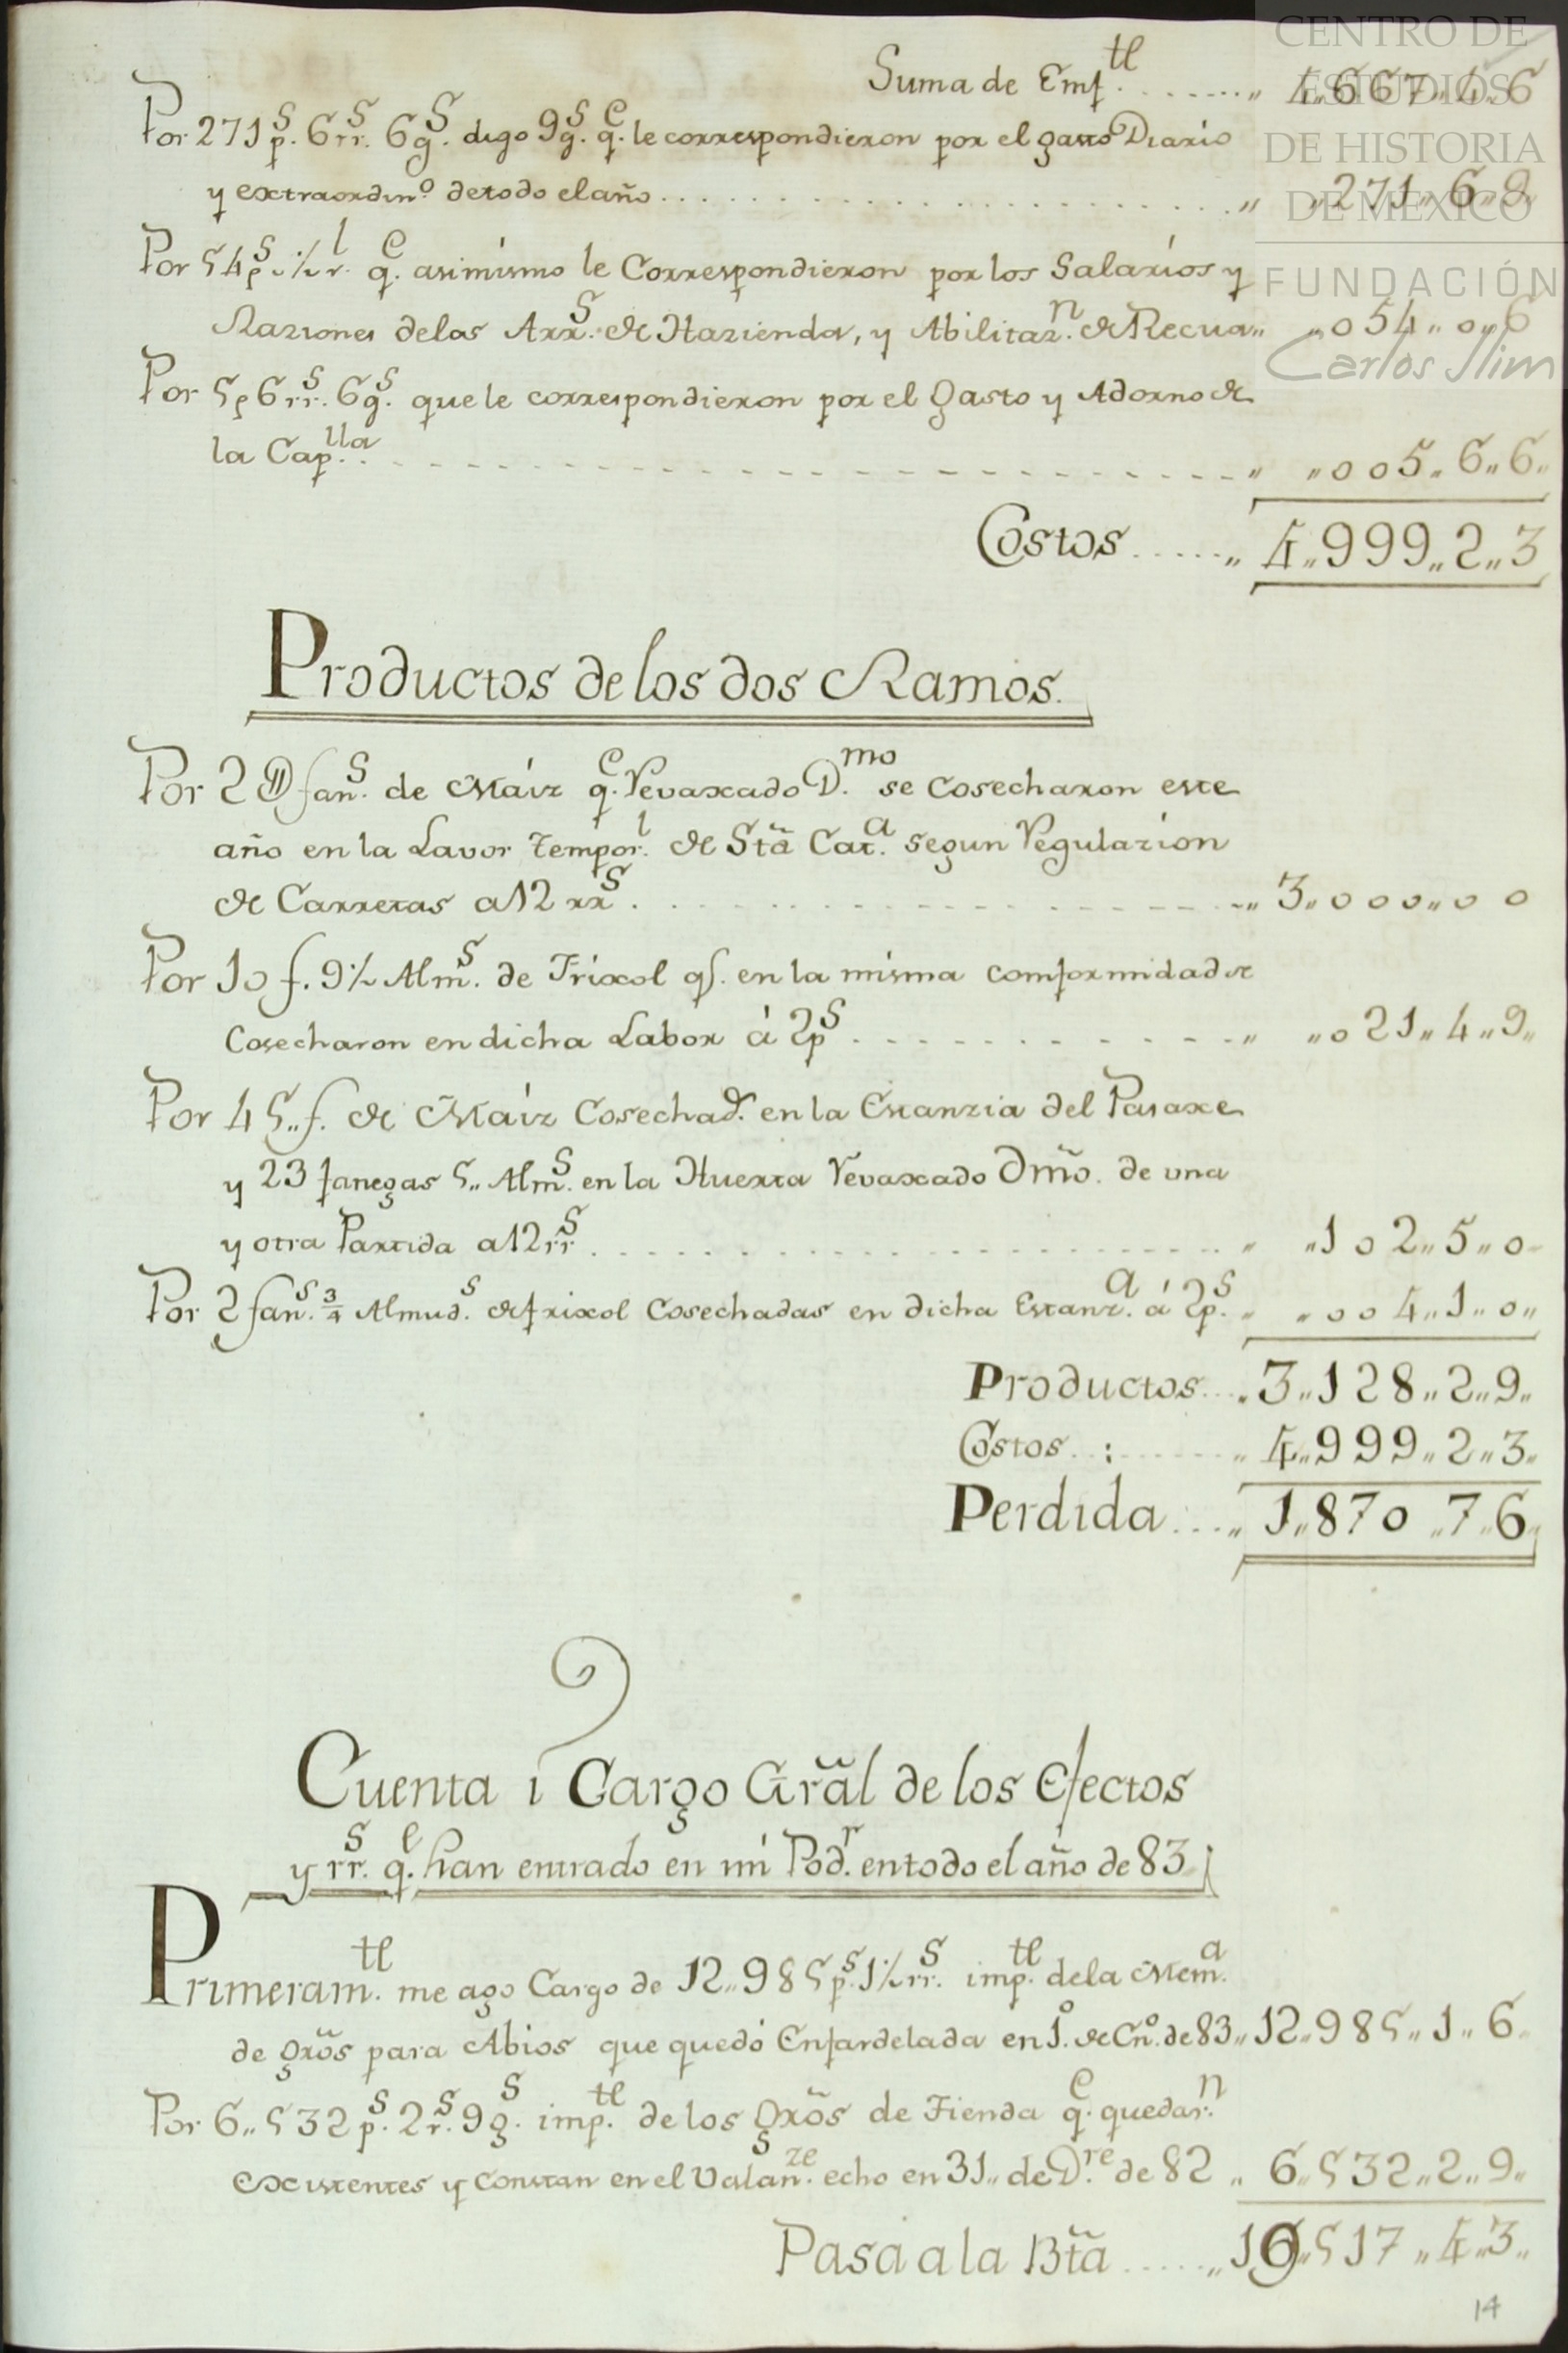 Suma de Emf.te ........ „ 4„667„4„6
Por 271p.s 6rr.s 6g.s digo 9g.s q.e le correspondieron por el gasto Diario
y extraordin.o de todo el año ........ „ „271„6„9„
Por 54p.s ½r.l q.e asimismo le Correspondieron por los Salarios y
Raziones de las Arr.s de Hazienda, y Abilitaz.n de Recua„ „054„0„6
Por 5p 6rr.s 6g.s que le correspondieron por el gasto y Adorno de
la Cap.lla ........ „ „005„6„6„
Costos ..... „ 4„999„2„3
Productos de los dos Ramos.
Por 2@ fan.s de Maiz q.e revaxado D.mo se Cosecharon este
año en la Lavor tempor.l de Stã Cat.a segun regulazion
de Carretas a 12 rr.s ........ „ 3„000„0 0
Por 10 f. 9½ Alm.s de Frixol q.e en la misma comformidad se
Cosecharon en dicha Labor á 2p.s ........ „ „021„4„9„
Por 45„f. de Maiz Cosechad.s en la Estanzia del Pasaxe
y 23 fanegas 5„ Alm.s en la Huerta revaxado Dmõ. de una
y otra Partida a 12 rr.s ........ „ „102„5„0
Por 2 fan.s ¾ Almud.s de frixol Cosechadas en dicha Estanz.a á 2p.s „ „004„1„0„
Productos .... 3„128„2„9„
Costos ..:..... „ 4„999„2„3„
Perdida .... „ 1„870„7„6„
Cuenta i Cargo Grãl de los Efectos
y rr.s q.e han entrado en mi Pod.r en todo el año de 83
Primeram.te me ago Cargo de 12„985p.s 1½rr.s imp.te de la Mem.a
de gxõs para Abios que quedó Enfardelada en 1.o de En.o de 83„ 12„985„1„6„
Por 6„532p.s 2r.s 9g.s imp.te de los gxõs de Tienda q.e quedar.n
existentes y constan en el Valan.ze echo en 31„ de D.re de 82 „ 6„532„2„9„
Pasa a la Btã ..... „19„517„4„3„
14
CENTRO DE
ESTUDIOS
DE HISTORIA
DE MÉXICO
FUNDACIÓN
Carlos Slim